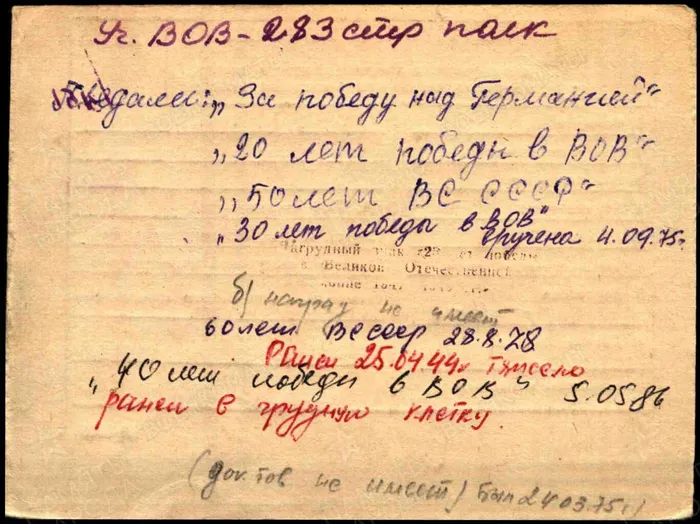 Уч. ВОВ - 283 стр полк
Медали: „За победу над Германией"
„20 лет победы в ВОВ"
„50 лет ВС СССР"
„30 лет победы в ВОВ" вручена 4.09.75г
Нагрудный знак «25 лет победы
в Великой Отечественной
войне
б/наград не имеет
60 лет ВС СССР 28.8.78
Ранен 25.04.44г тяжело
„40 лет победы в ВОВ" 5.05 86
ранен в грудную клетку.
(док-тов не имеет) был 24 03.75г)